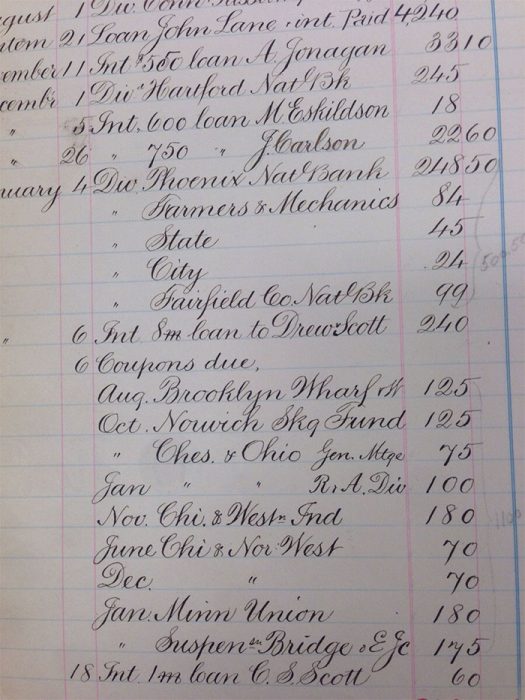 gust 1 Div. Conn
tem 21 Loan John Lane & int. Paid 4,240
ember 11 Int $550 loan A. Jonagan 33 10
cembr 1 Div Hartford Nat'l Bk 245
" 5 Int. 600 loan M. Eskildson 18
" 26 " 750 " J. Carlson 22 60
nuary 4 Div. Phoenix Nat'l Bank 248 50
" Farmers & Mechanics 84
" State 45
" City 24
" Fairfield Co. Nat'l Bk 99
" 6 Int 8m loan to Drew Scott 240
6 Coupons due,
Aug. Brooklyn Wharf 125
Oct. Norwich Skg Fund 125
" Ches. & Ohio Gen. Mtge 75
Jan " " R. & A. Div 100
Nov. Chi. & Westn Ind 180
June Chi & Nor. West 70
Dec. " 70
Jan. Minn Union 180
" Suspensn Bridge & E Jc 175
18 Int. 1m loan C. S. Scott 60